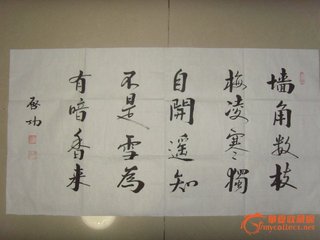 墙角数枝
梅凌寒獨
自開遥知
不是雪為
有暗香来
启功
华夏收藏网
mycollect.net